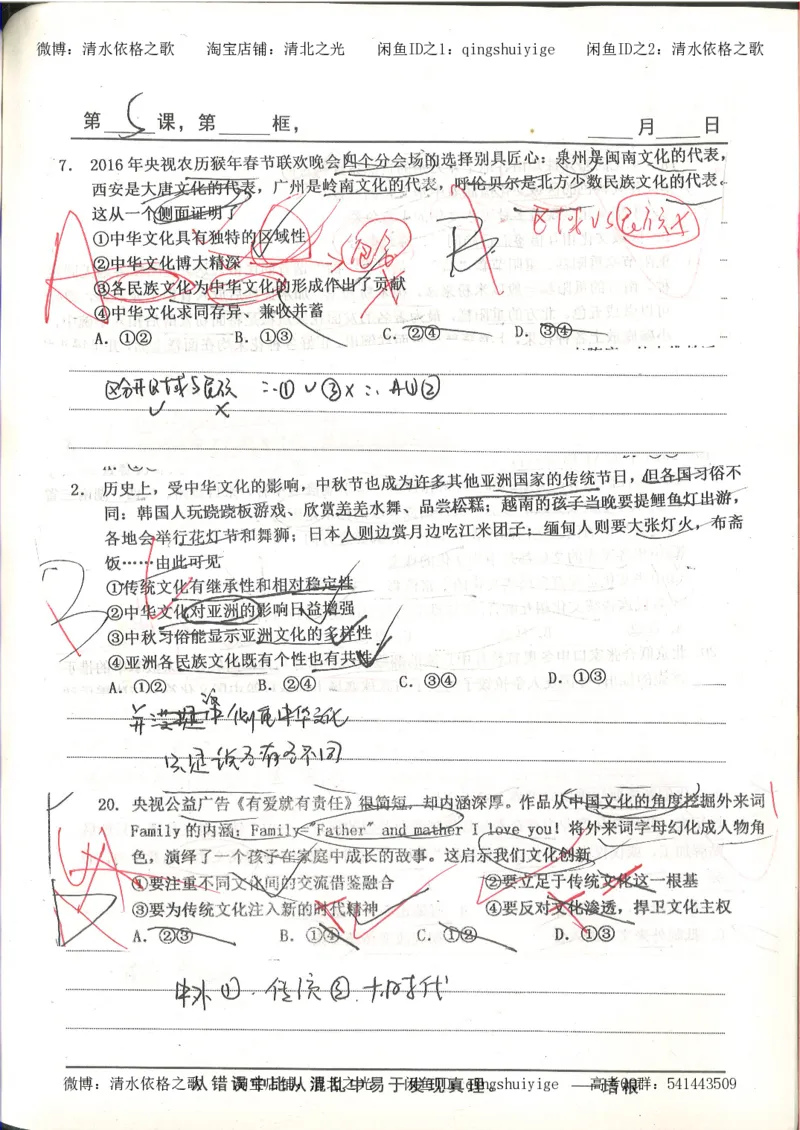 微博：清水依格之歌 淘宝店铺：清北之光 闲鱼ID之1：qingshuiyige 闲鱼ID之2：清水依格之歌
第 5 课，第 框， 月 日
7． 2016年央视农历猴年春节联欢晚会四个分会场的选择别具匠心：泉州是闽南文化的代表，
西安是大唐文化的代表，广州是岭南文化的代表，呼伦贝尔是北方少数民族文化的代表。
这从一个侧面证明了
区域 VS 民族 X
①中华文化具有独特的区域性
A 包含 B
②中华文化博大精深
③各民族文化为中华文化的形成作出了贡献
④中华文化求同存异、兼收并蓄
A．①② B．①③ C．②④ D．③④
区分开区域与民族 ∴① ∪ ③X ∴ A∪②
2． 历史上，受中华文化的影响，中秋节也成为许多其他亚洲国家的传统节日，但各国习俗不
同：韩国人玩跷跷板游戏、欣赏羌羌水舞、品尝松糕；越南的孩子当晚要提鲤鱼灯出游，
各地会举行花灯节和舞狮；日本人则边赏月边吃江米团子；缅甸人则要大张灯火，布斋
饭……由此可见
①传统文化有继承性和相对稳定性
B
②中华文化对亚洲的影响日益增强
③中秋习俗能显示亚洲文化的多样性
④亚洲各民族文化既有个性也有共性
A．①② B．②④ C．③④ D．①③
中华文化
只是说各有各不同
20． 央视公益广告《有爱就有责任》很简短，却内涵深厚。作品从中国文化的角度挖掘外来词
Family 的内涵：Family="Father" and mather I love you! 将外来词字母幻化成人物角
色，演绎了一个孩子在家庭中成长的故事。这启示我们文化创新
①要注重不同文化间的交流借鉴融合 ②要立足于传统文化这一根基
③要为传统文化注入新的时代精神 ④要反对文化渗透，捍卫文化主权
A．②③ B．①④ C．①② D．①③
中外① 传统②
微博：清水依格之歌 淘宝店铺：清北之光 闲鱼ID qingshuiyige 高考QQ群：541443509
从错误中比从混乱中易于发现真理。 ——培根